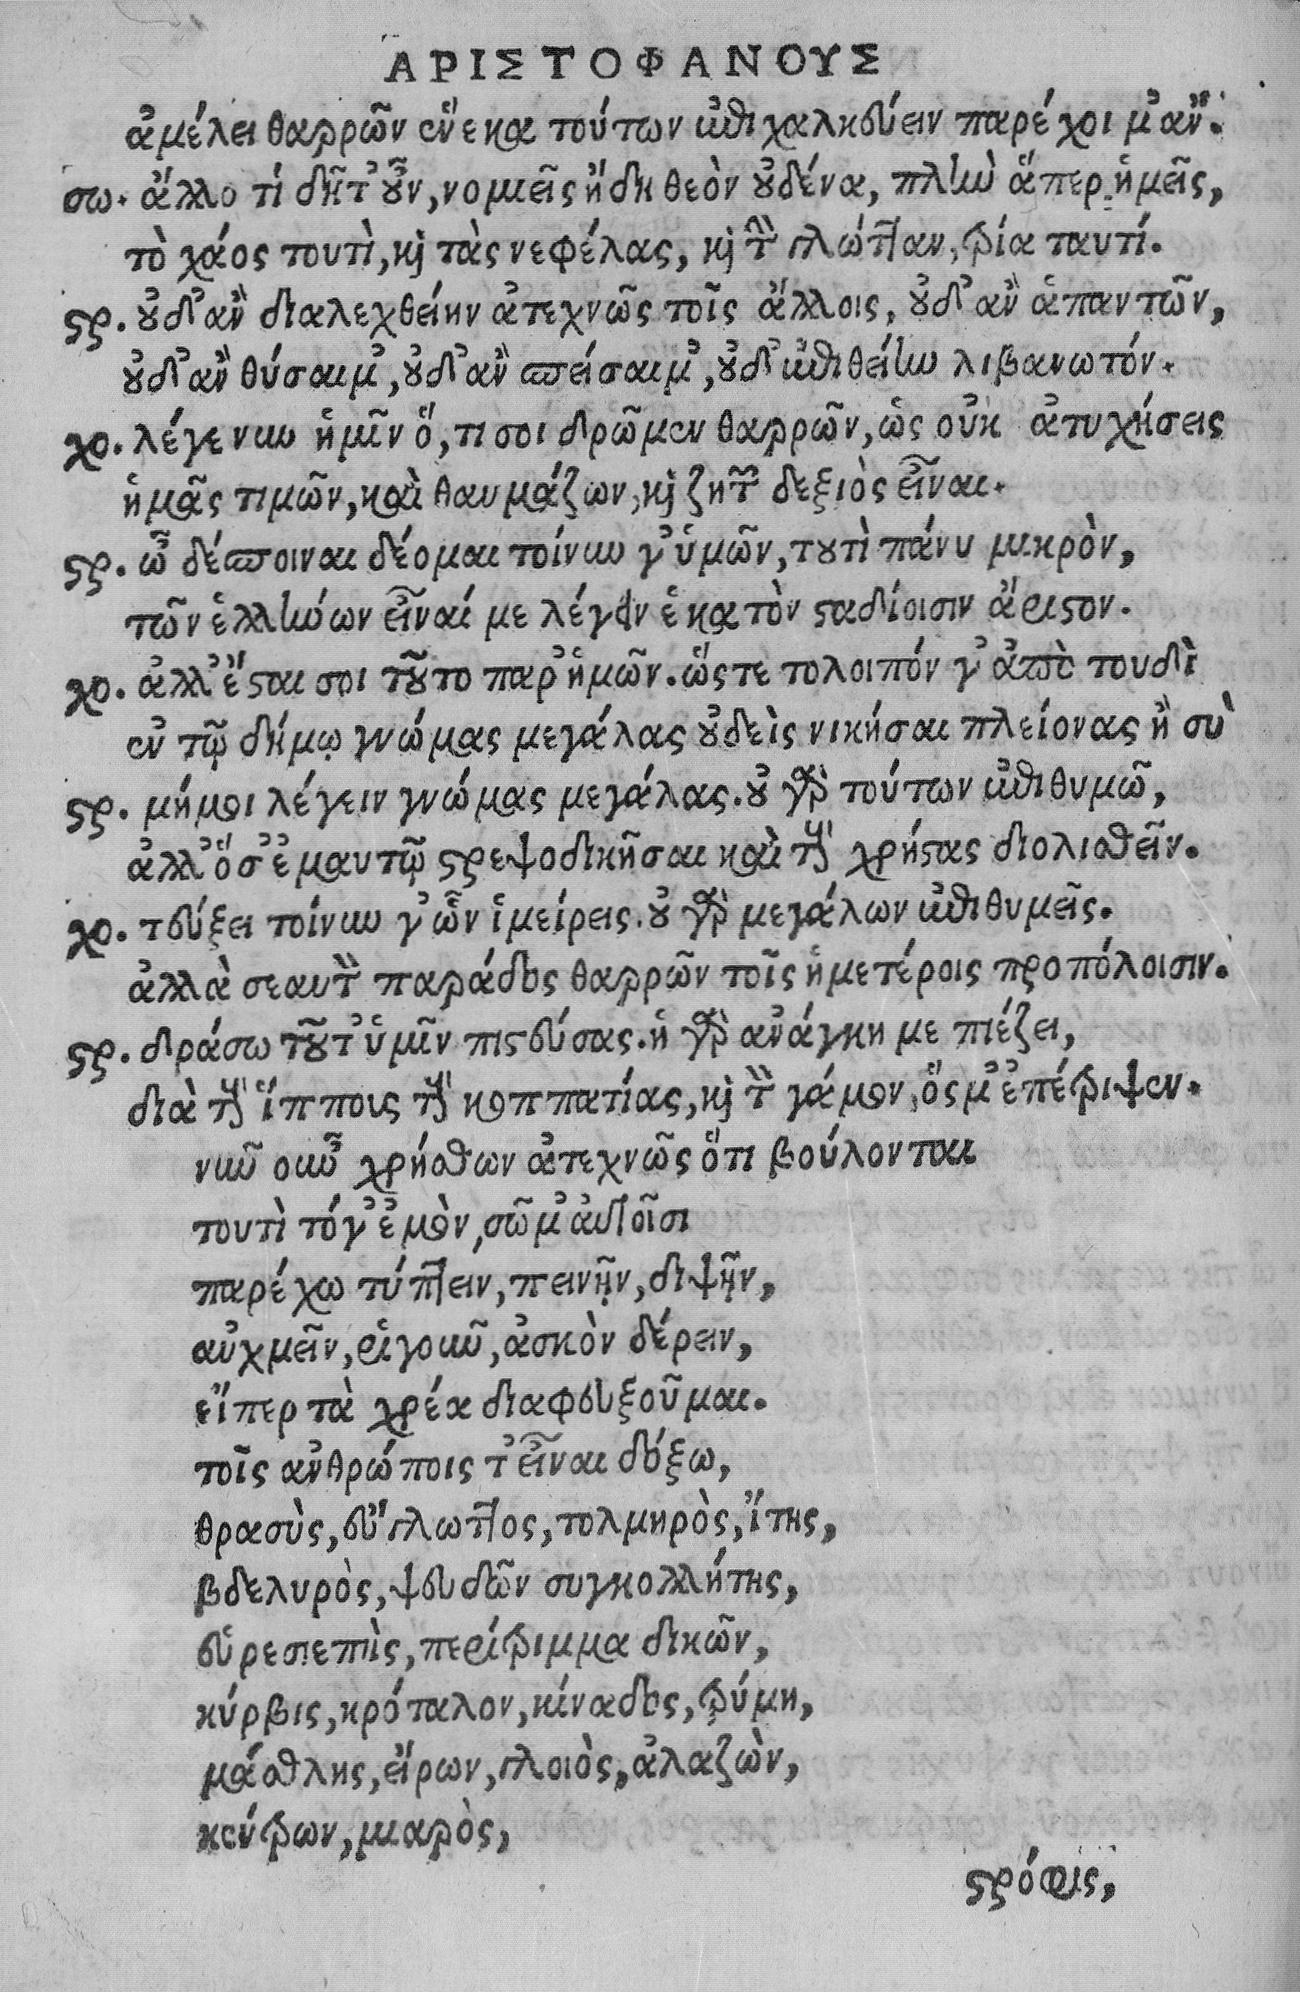 ΑΡΙΣΤΟΦΑΝΟΥΣ
ἀμέλει θαρρῶν οὕνεκα τούτων ἐπιχαλκεύειν παρέχοιμ' ἄν.
σω. ἄλλο τί δῆτ' οὖν, νομιεῖς ἤδη θεὸν οὐδένα, πλὴν ἅπερ ἡμεῖς,
τὸ χάος τουτὶ, καὶ τὰς νεφέλας, καὶ τὴν γλώτταν, τρία ταυτί.
στρ. οὐδ' ἂν διαλεχθείην ἀτεχνῶς τοῖς ἄλλοις, οὐδ' ἂν ἁπαντῶν,
οὐδ' ἂν θύσαιμ', οὐδ' ἂν σπείσαιμ', οὐδ' ἐπιθείην λιβανωτόν.
χο. λέγε νυν ἡμῖν ὅ, τι σοι δρῶμεν θαρρῶν, ὡς οὐκ ἀτυχήσεις
ἡμᾶς τιμῶν, καὶ θαυμάζων, καὶ ζητῶν δεξιὸς εἶναι.
στρ. ὦ δέσποιναι δέομαι τοίνυν γ' ὑμῶν, τουτὶ πάνυ μικρὸν,
τῶν ἑλλήνων εἶναί με λέγειν ἑκατὸν σταδίοισιν ἄριστον.
χο. ἀλλ' ἔσται σοι τοῦτο παρ' ἡμῶν. ὥστε τολοιπόν γ' ἀπὸ τουδὶ
ἐν τῷ δήμῳ γνώμας μεγάλας οὐδεὶς νικήσαι πλείονας ἢ σὺ
στρ. μήμοι λέγειν γνώμας μεγάλας. οὐ γὰρ τούτων ἐπιθυμῶ,
ἀλλ' ὅσ' ἐμαυτῷ στρεψοδικῆσαι καὶ τοὺς χρήστας διολισθεῖν.
χο. τεύξει τοίνυν γ' ὧν ἱμείρεις. οὐ γὰρ μεγάλων ἐπιθυμεῖς.
ἀλλὰ σεαυτὸν παράδος θαρρῶν τοῖς ἡμετέροις προπόλοισιν.
στρ. δράσω τοῦτ' ὑμῖν πιστεύσας. ἡ γὰρ ἀνάγκη με πιέζει,
διὰ τοὺς ἵππους τοὺς κοππατίας, καὶ τὸν γάμον, ὅς μ' ἐπέτριψεν.
νῦν οὖν χρήσθων ἀτεχνῶς ὅτι βούλονται
τουτὶ τόγ' ἐμὸν, σῶμ' αὐτοῖσι
παρέχω τύπτειν, πεινῇν, διψῇν,
αὐχμεῖν, ῥιγοῦν, ἀσκὸν δέρειν,
εἴπερ τὰ χρέα διαφευξοῦμαι.
τοῖς ἀνθρώποις τ' εἶναι δόξω,
θρασὺς, εὔγλωττος, τολμηρὸς, ἴτης,
βδελυρὸς, ψευδῶν συγκολλήτης,
εὑρεσιεπὴς, περίτριμμα δικῶν,
κύρβις, κρόταλον, κίναδος, τρύμη,
μάσθλης, εἴρων, γλοιὸς, ἀλαζὼν,
κέντρων, μιαρὸς,
στρόφις,